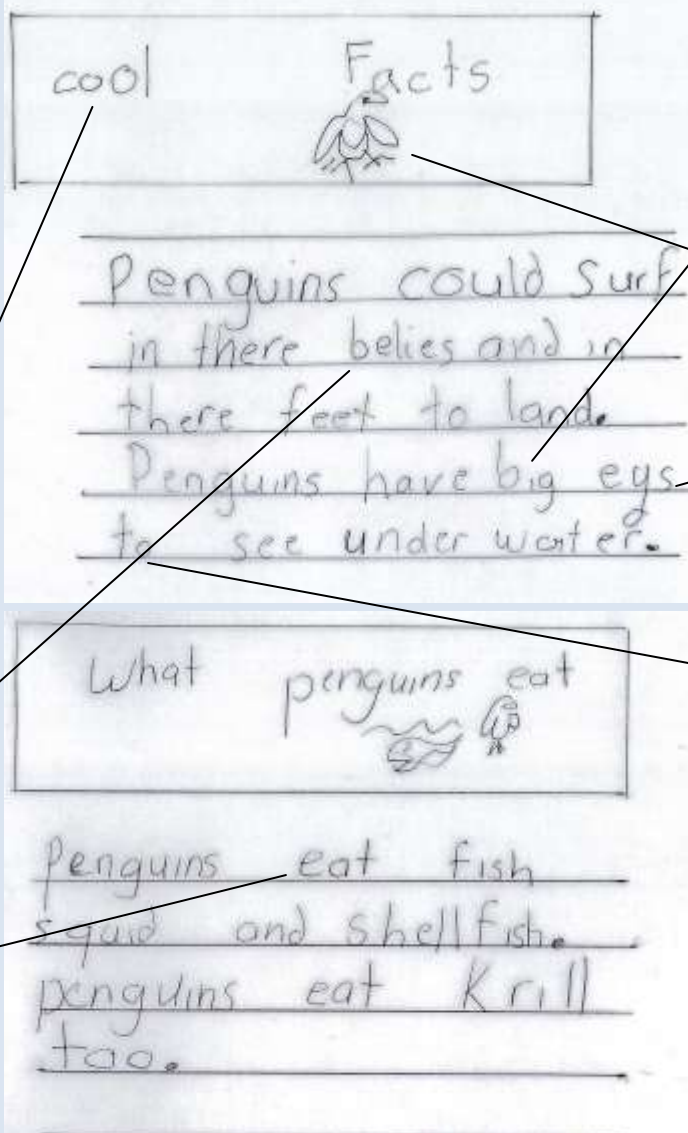 cool Facts
Penguins could surf
in there belies and in
there feet to land.
Penguins have big eys
to see under water.
What penguins eat
Penguins eat fish
squid and shellfish.
penguins eat Krill
too.